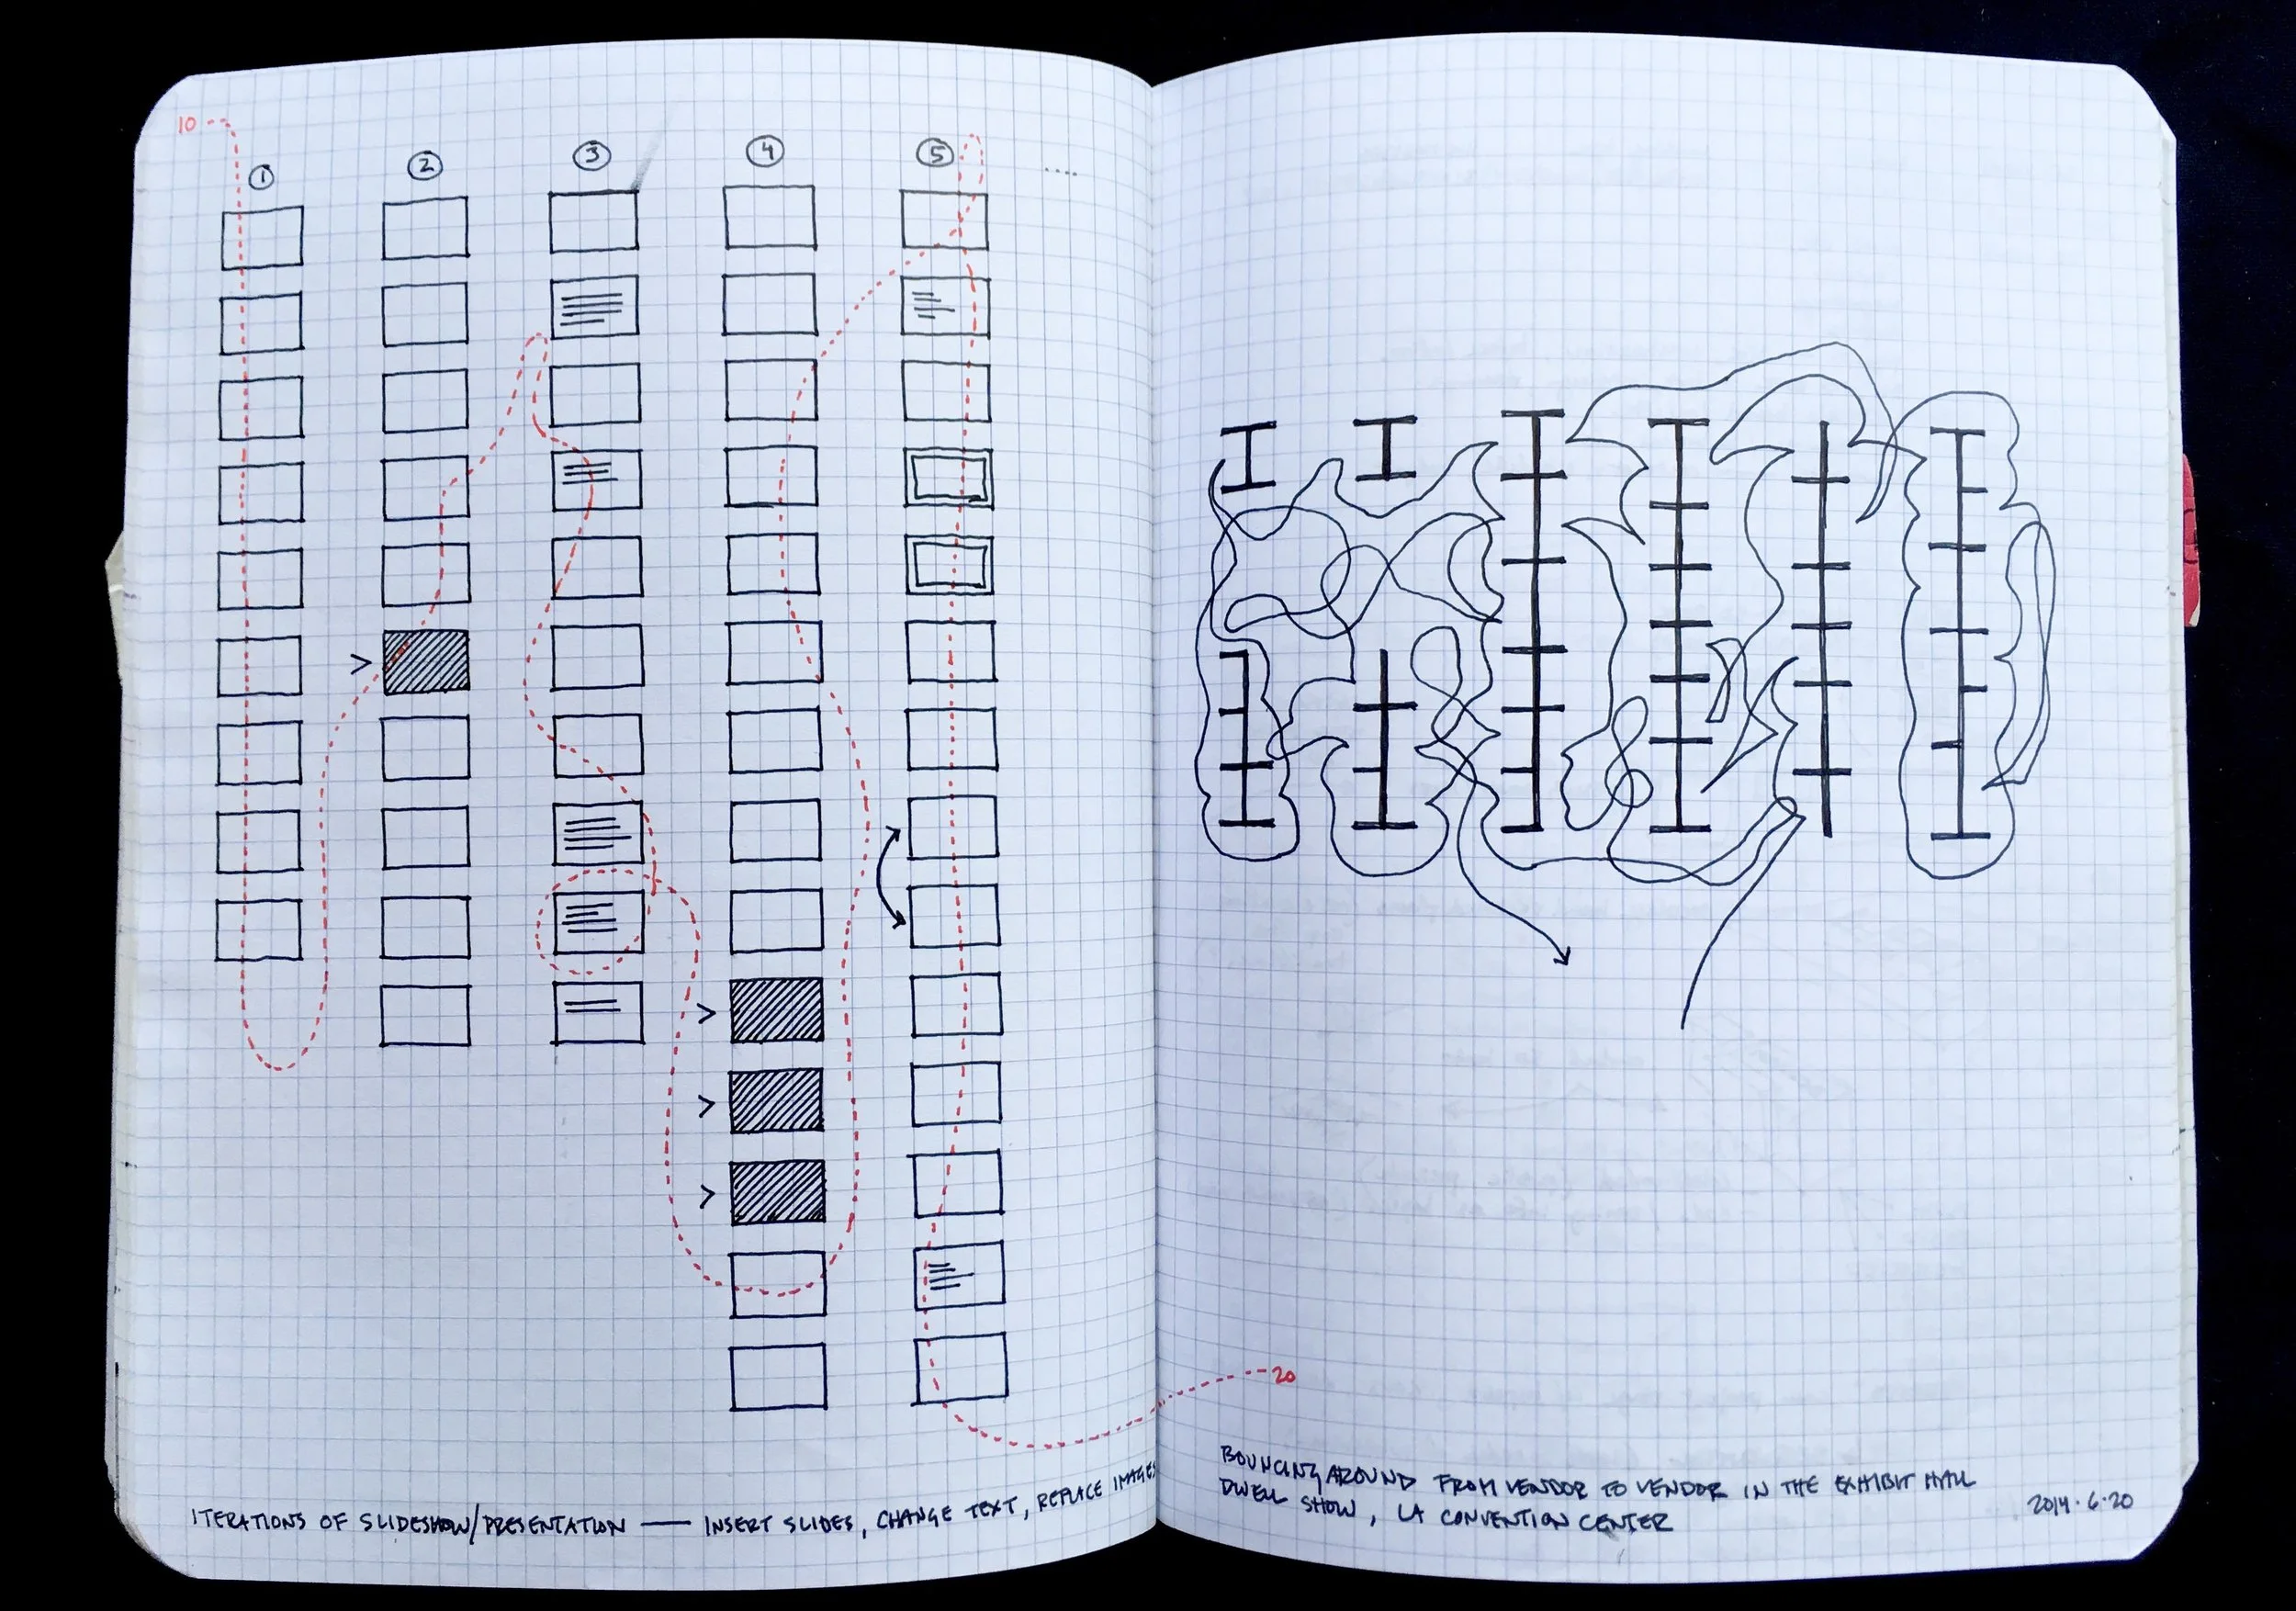 10
① ② ③ ④ ⑤ ....
>
>
>
>
20
ITERATIONS OF SLIDESHOW/PRESENTATION — INSERT SLIDES, CHANGE TEXT, REPLACE IMAGES
BOUNCING AROUND FROM VENDOR TO VENDOR IN THE EXHIBIT HALL
DWELL SHOW, LA CONVENTION CENTER
2014.6.20